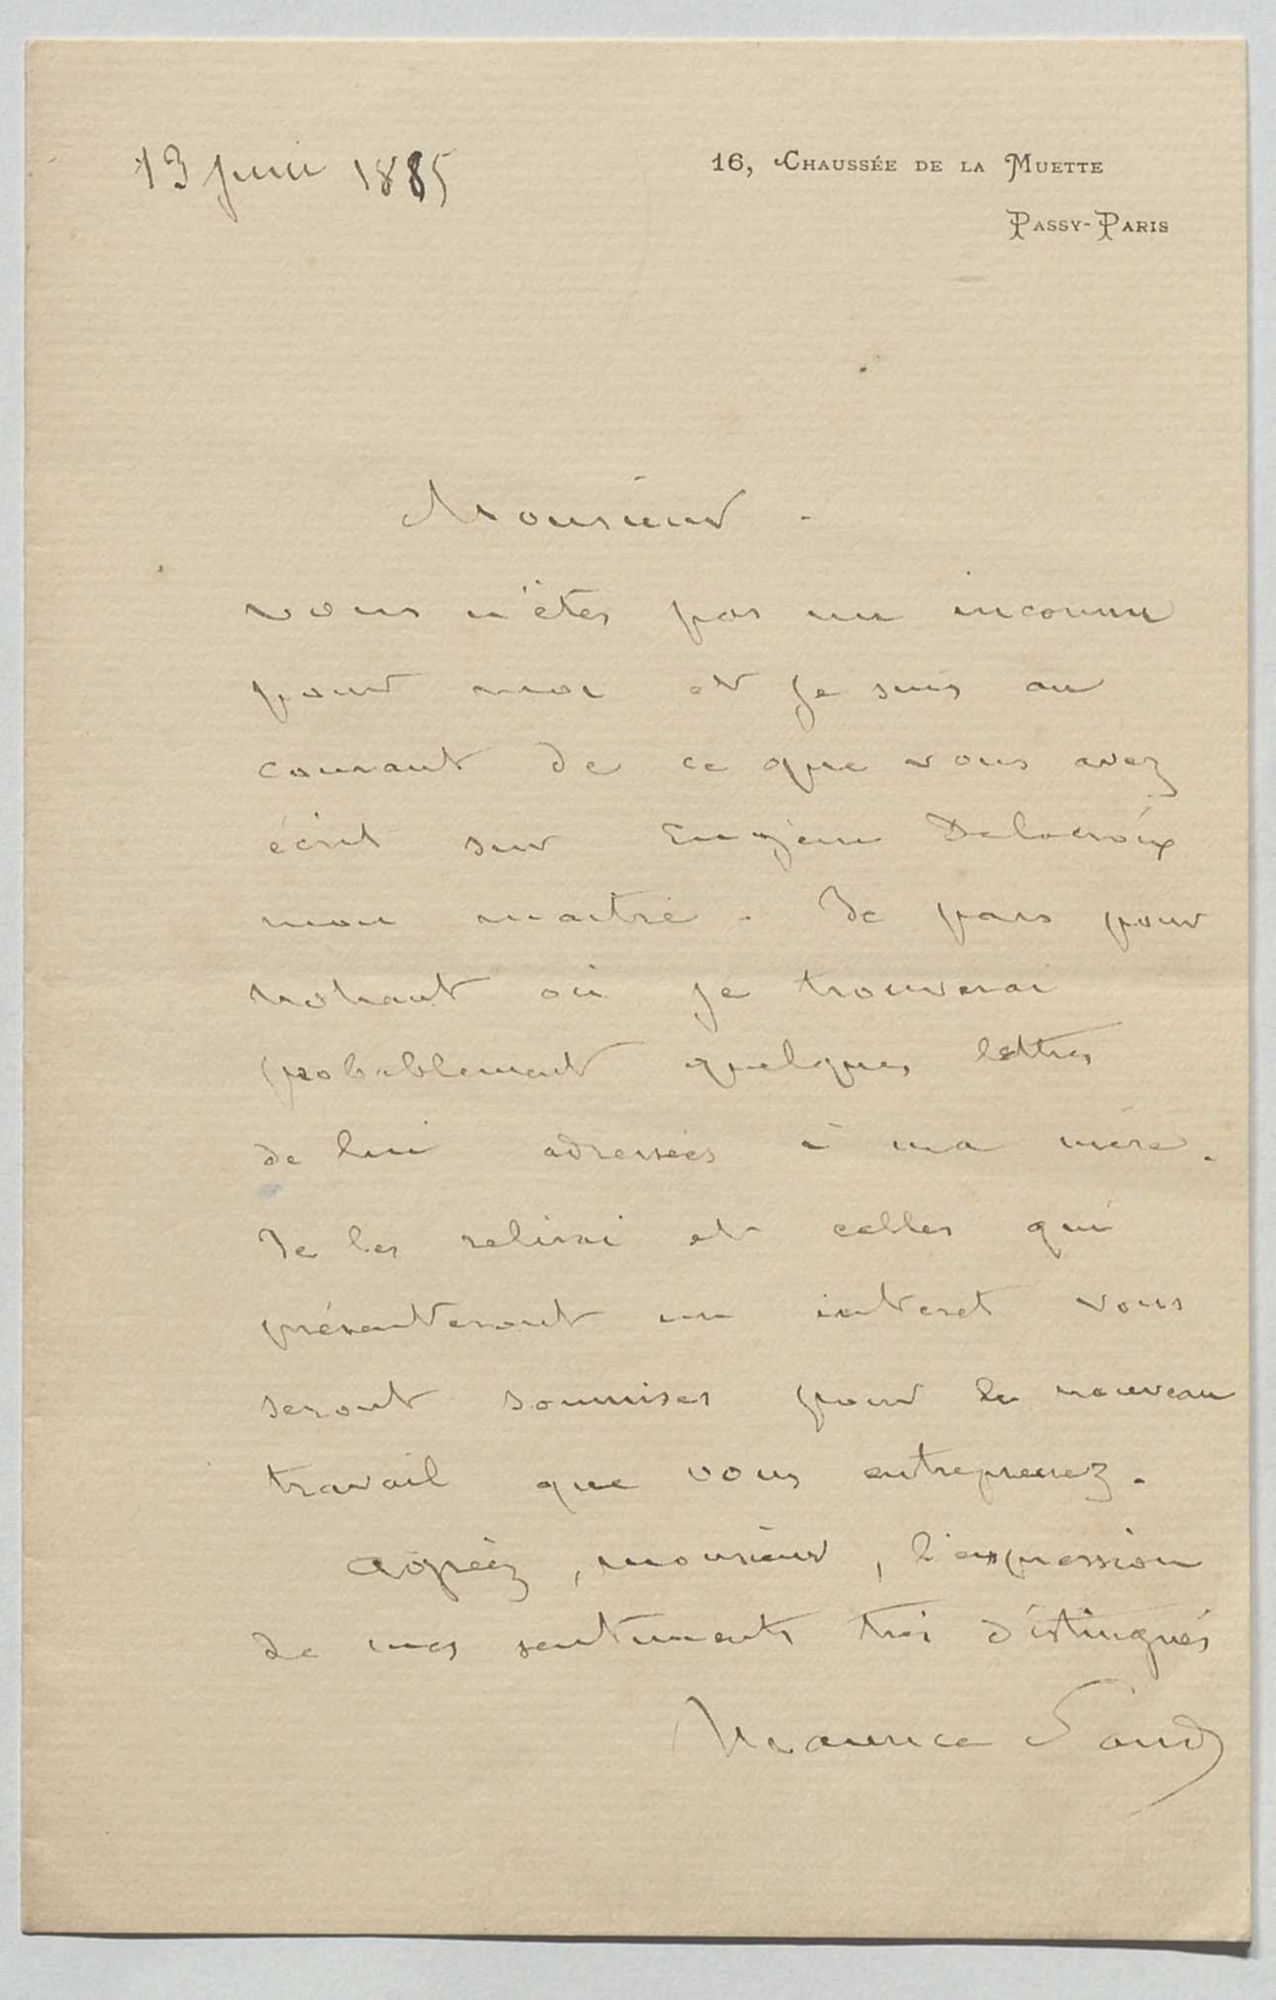 13 juin 1885
16, CHAUSSÉE DE LA MUETTE
PASSY-PARIS
Monsieur.
vous n'êtes pas un inconnu
pour moi et je suis au
courant de ce que vous avez
écrit sur Eugène Delacroix
mon maitre. Je pars pour
Nohant où je trouverai
probablement quelques lettres
de lui adressées à ma mère.
Je les relirai et celles qui
présenteront un interet vous
seront soumises pour le nouveau
travail que vous entreprenez.
Agréez, monsieur, l'expression
de mes sentiments très distingués
Maurice Sand